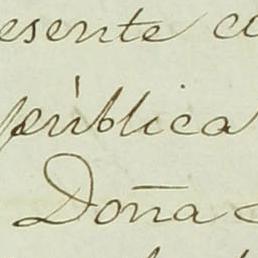 esente c
pública
Doña